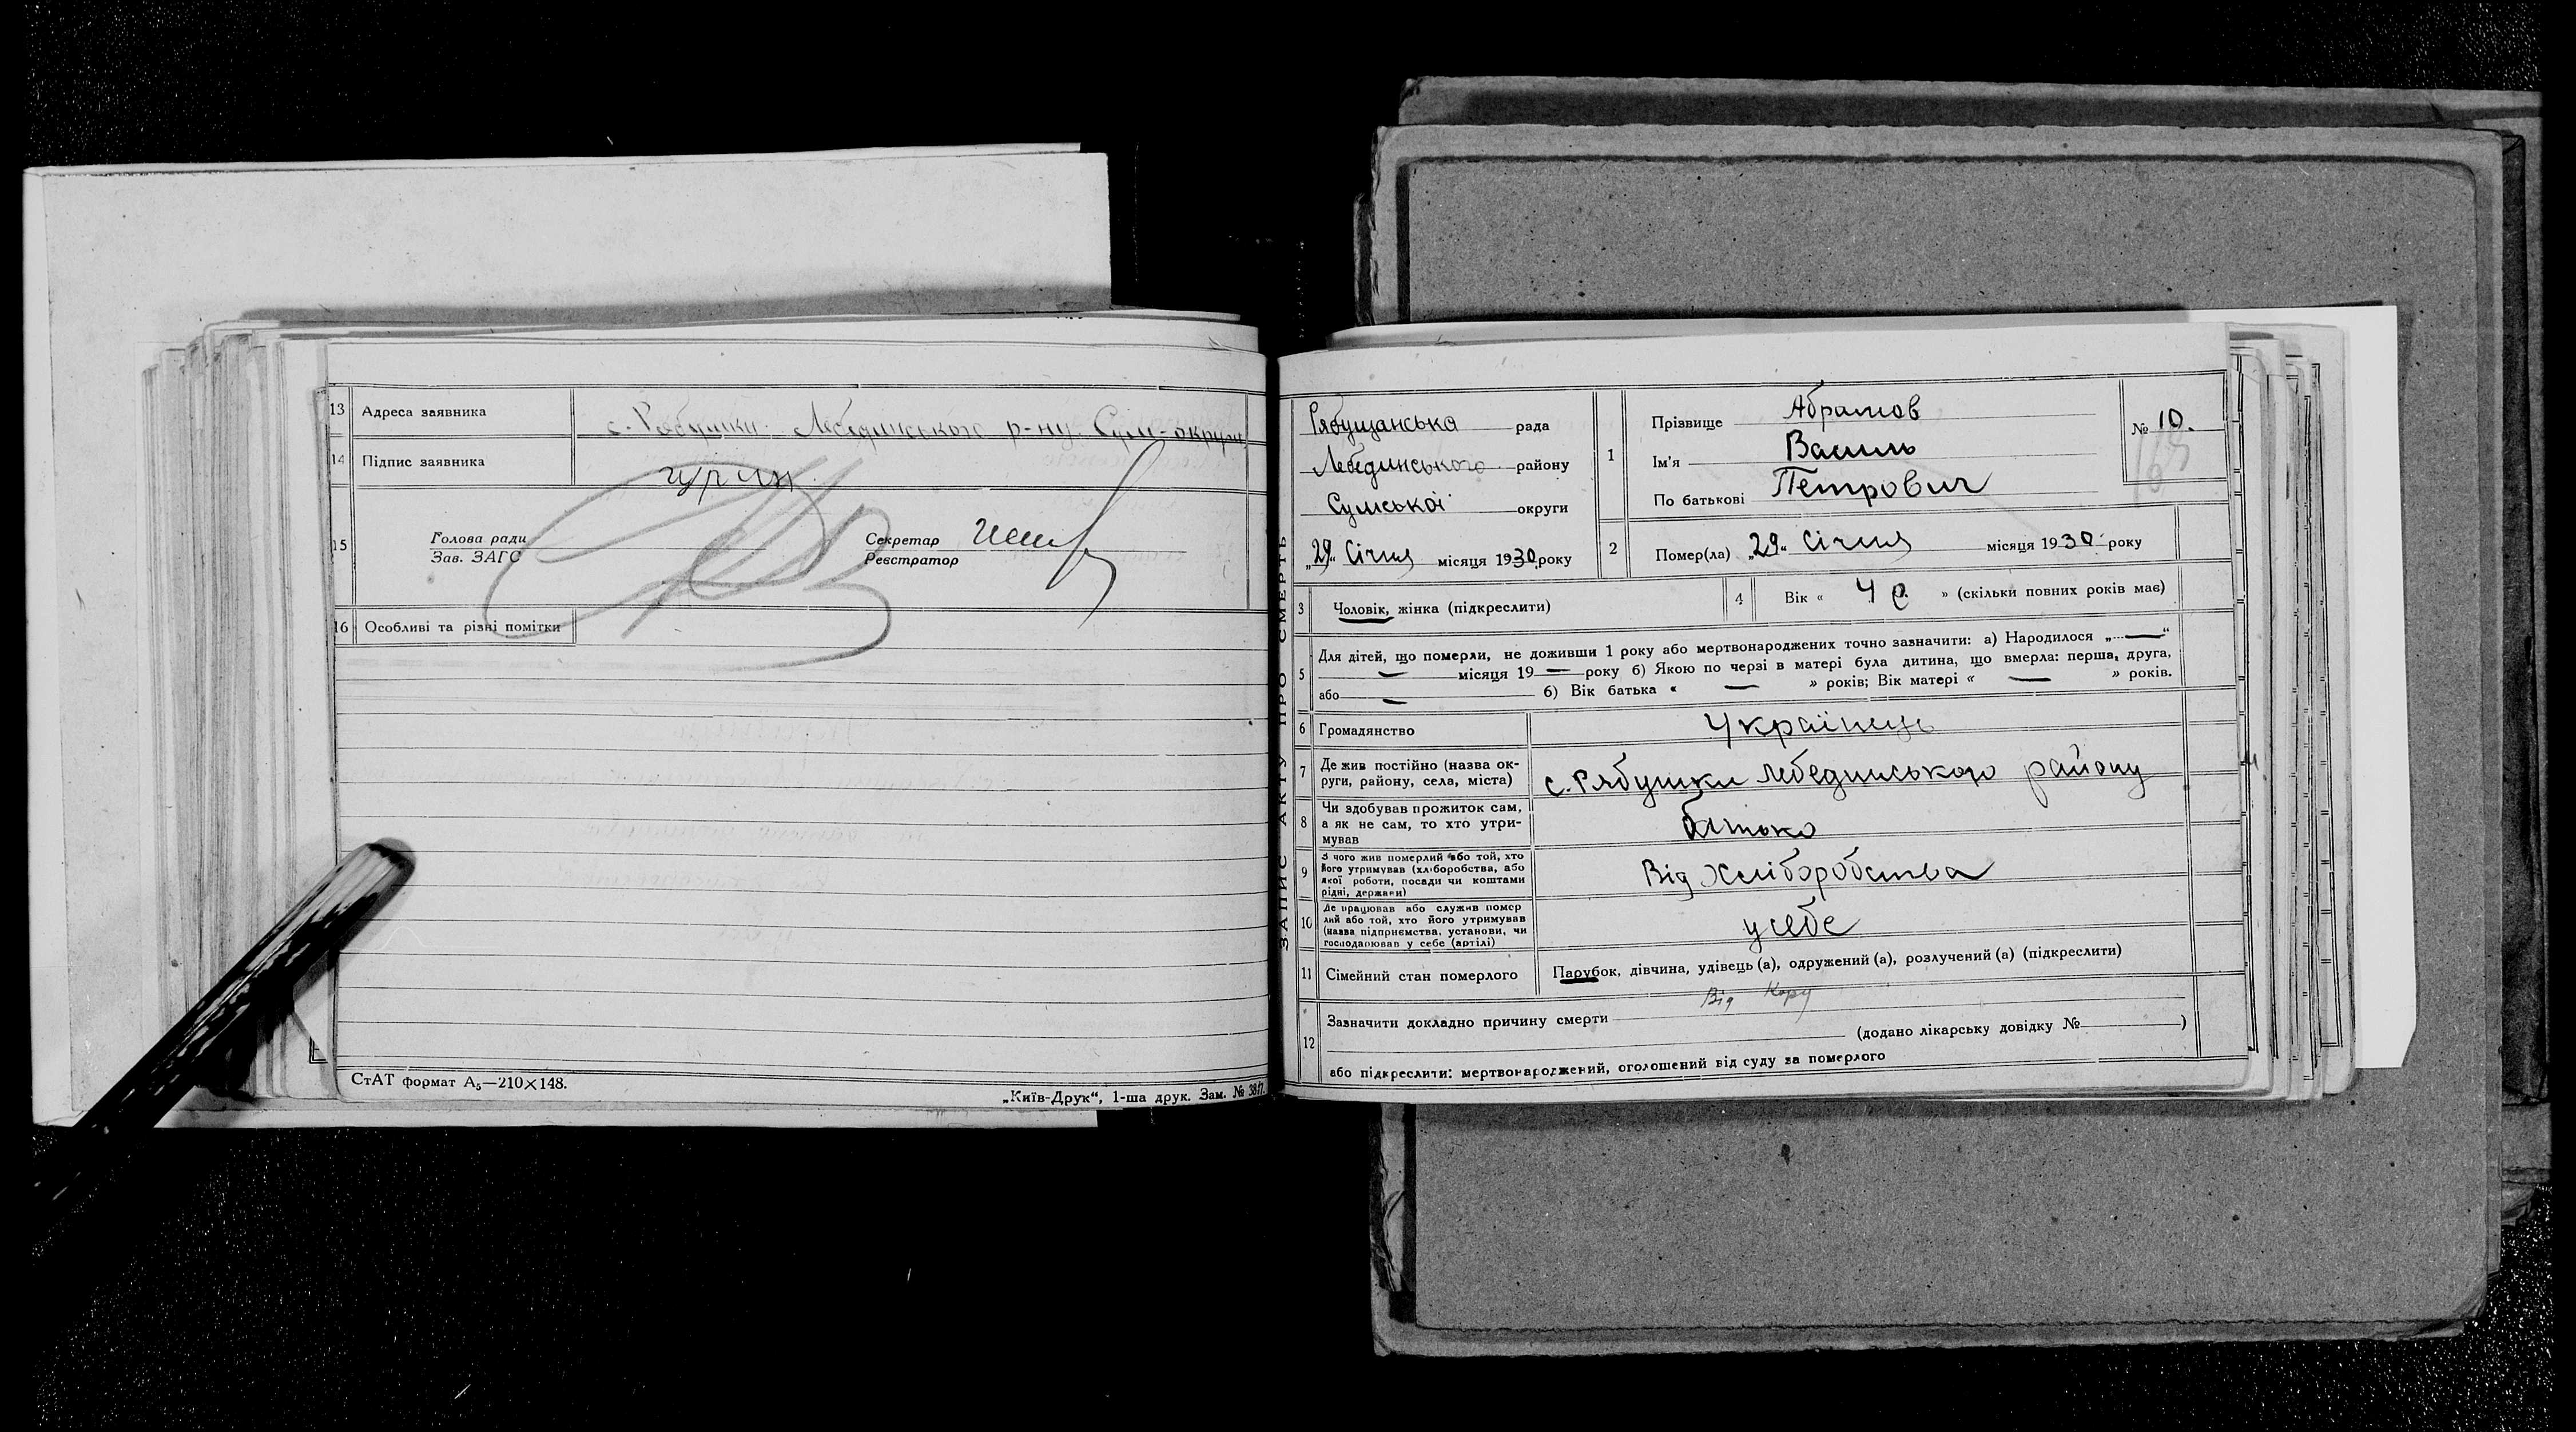 13 Адреса заявника с. Рябушки Лебединського р-ну Сум-округи
14 Підпис заявника
15 Голова ради Секретар
Зав. ЗАГС Реєстратор
16 Особливі та різні помітки
СтАТ формат А5—210×148.
„Київ-Друк“, 1-ша друк. Зам. №
ЗАПИС АКТУ ПРО СМЕРТЬ
Рябущанська рада
Лебединського району
Сумської округи
„29“ Січня місяця 1930 року
1 Прізвище Абрамов
Ім'я Василь
По батькові Петрович
№ 10.
2 Помер(ла) „29“ Січня місяця 1930 року
3 Чоловік, жінка (підкреслити)
4 Вік « 4 р. » (скільки повних років має)
5 Для дітей, що померли, не доживши 1 року або мертвонароджених точно зазначити: а) Народилося „—“
— місяця 19 — року б) Якою по черзі в матері була дитина, що вмерла: перша, друга,
або — б) Вік батька « — » років; Вік матері « — » років.
6 Громадянство Українець
7 Де жив постійно (назва ок-
руги, району, села, міста) с. Рябушки Лебединського району
8 Чи здобував прожиток сам,
а як не сам, то хто утри-
мував батько
9 З чого жив померлий або той, хто
його утримував (хліборобства, або
якої роботи, посади чи коштами
рідні, держави) Від Хліборобства
10 Де працював або служив помер
лий або той, хто його утримував
(назва підприємства, установи, чи
господарював у себе (артілі) у себе
11 Сімейний стан померлого Парубок, дівчина, удівець (а), одружений (а), розлучений (а) (підкреслити)
12 Зазначити докладно причину смерти Від Кору
(додано лікарську довідку № )
або підкреслити: мертвонароджений, оголошений від суду за померлого